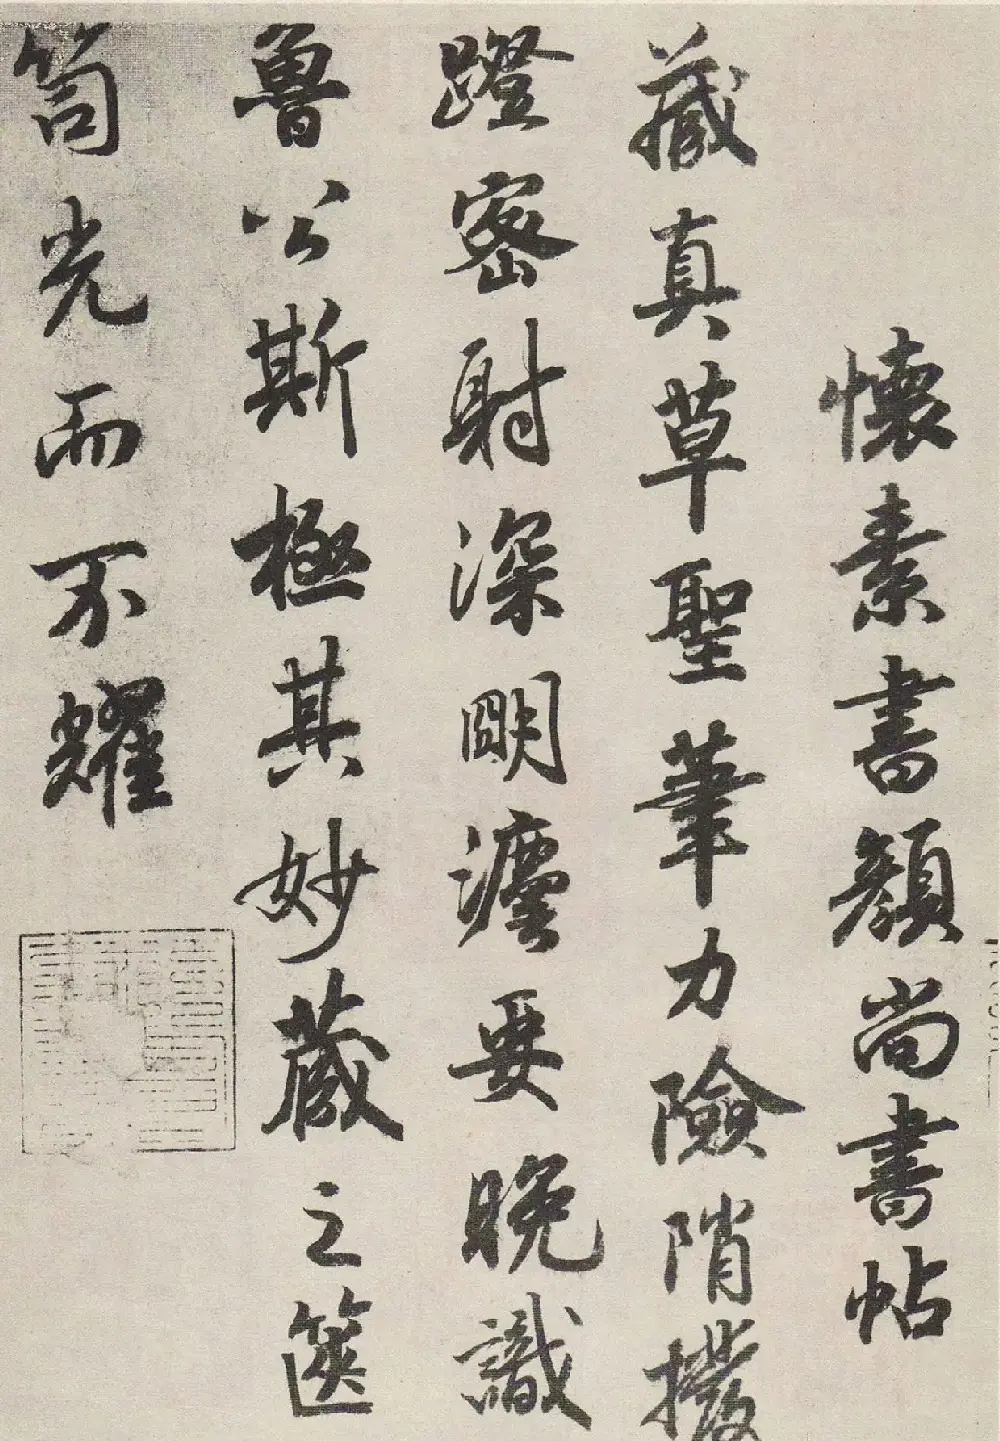 懷素書顏尚書帖
藏真草聖筆力險陗撥
蹬密射深明瀍要晚識
魯公斯極其妙藏之篋
笥光而不耀